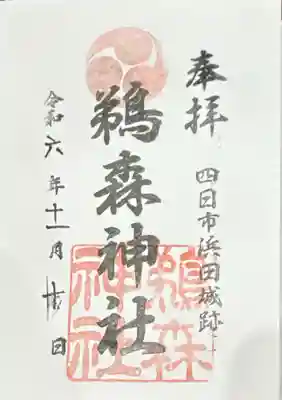 奉拝
四日市浜田城跡
鵜森神社
鵜森
神社
令和六年十一月十日